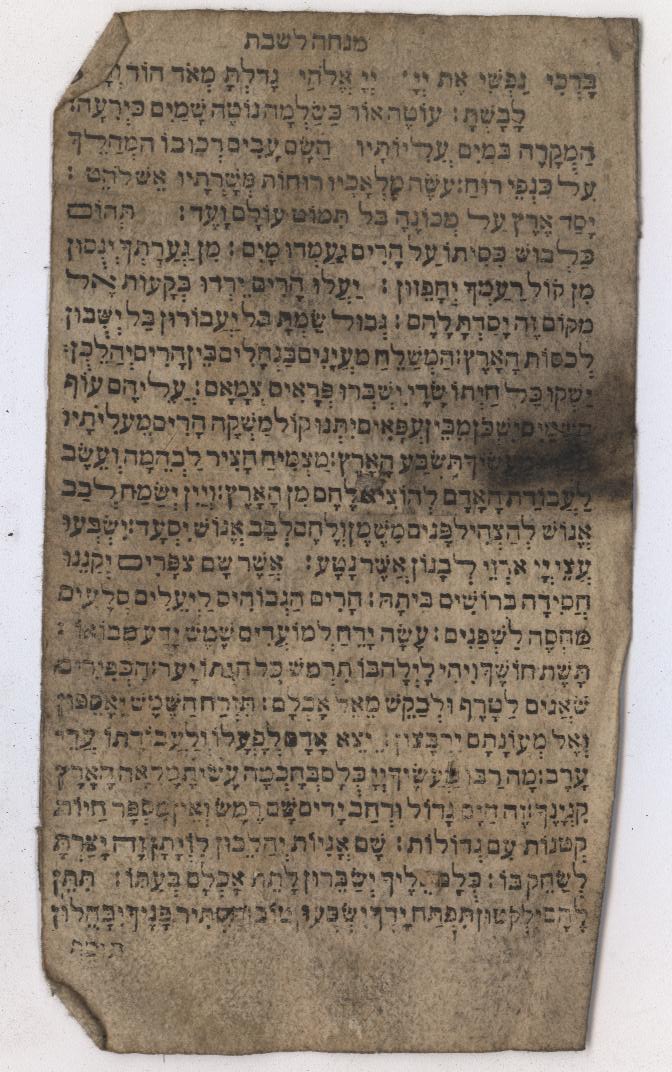 מנחה לשבת
בָּרְכִי נַפְשִׁי אֶת יְיָ׳ יְיָ אֱלֹהַי גָדַלְתָּ מְאֹד הוֹד
לָבָשְׁתָּ: עוֹטֶה אוֹר כַּשַּׂלְמָה נוֹטֶה שָׁמַיִם כַּיְרִעָה:
הַמְקָרֶה בַמַּיִם עֲלִיּוֹתָיו הַשָּׂם עָבִים רְכוּבוֹ הַמְהַלֵּךְ
עַל כַּנְפֵי רוּחַ: עֹשֶׂה מַלְאָכָיו רוּחוֹת מְשָׁרְתָיו אֵשׁ לֹהֵט:
יָסַד אֶרֶץ עַל מְכוֹנֶהָ בַּל תִּמּוֹט עוֹלָם וָעֶד: תְּהוֹם
כַּלְבוּשׁ כִּסִּיתוֹ עַל הָרִים יַעַמְדוּ מָיִם: מִן גַּעֲרָתְךָ יְנֻסוּן
מִן קוֹל רַעַמְךָ יֵחָפֵזוּן: יַעֲלוּ הָרִים יֵרְדוּ בְקָעוֹת אֶל
מְקוֹם זֶה יָסַדְתָּ לָהֶם: גְּבוּל שַׂמְתָּ בַּל יַעֲבוֹרוּן בַּל יְשֻׁבוּן
לְכַסּוֹת הָאָרֶץ: הַמְשַׁלֵּחַ מַעְיָנִים בַּנְּחָלִים בֵּין הָרִים יְהַלֵּכוּן:
יַשְׁקוּ כָּל חַיְתוֹ שָׂדָי יִשְׁבְּרוּ פְרָאִים צְמָאָם: עֲלֵיהֶם עוֹף
הַשָּׁמַיִם יִשְׁכֹּן מִבֵּין עֳפָאִים יִתְּנוּ קוֹל מַשְׁקֶה הָרִים מֵעֲלִיֹּתָיו
מַעֲשֶׂיךָ תִּשְׂבַּע הָאָרֶץ: מַצְמִיחַ חָצִיר לַבְּהֵמָה וְעֵשֶׂב
לַעֲבוֹדַת הָאָדָם לְהוֹצִיא לֶחֶם מִן הָאָרֶץ: וְיַיִן יְשַׂמַּח לְבַב
אֱנוֹשׁ לְהַצְהִיל פָּנִים מִשֶּׁמֶן וְלֶחֶם לְבַב אֱנוֹשׁ יִסְעָד: יִשְׂבְּעוּ
עֲצֵי יְיָ אַרְזֵי לְבָנוֹן אֲשֶׁר נָטָע: אֲשֶׁר שָׁם צִפֳּרִים יְקַנֵּנוּ
חֲסִידָה בְּרוֹשִׁים בֵּיתָהּ: הָרִים הַגְּבוֹהִים לַיְּעֵלִים סְלָעִים
מַחְסֶה לַשְׁפַנִּים: עָשָׂה יָרֵחַ לְמוֹעֲדִים שֶׁמֶשׁ יָדַע מְבוֹאוֹ:
תָּשֶׁת חוֹשֶׁךְ וִיהִי לָיְלָה בּוֹ תִרְמֹשׂ כָּל חַיְתוֹ יָעַר: הַכְּפִירִים
שֹׁאֲגִים לַטָּרֶף וּלְבַקֵּשׁ מֵאֵל אָכְלָם: תִּזְרַח הַשֶּׁמֶשׁ יֵאָסֵפוּן
וְאֶל מְעוֹנֹתָם יִרְבָּצוּן: יֵצֵא אָדָם לְפָעֳלוֹ וְלַעֲבוֹדָתוֹ עֲדֵי
עָרֶב: מָה רַבּוּ מַעֲשֶׂיךָ יְיָ כֻּלָּם בְּחָכְמָה עָשִׂיתָ מָלְאָה הָאָרֶץ
קִנְיָנֶךָ: זֶה הַיָּם גָּדוֹל וּרְחַב יָדַיִם שָׁם רֶמֶשׂ וְאֵין מִסְפָּר חַיּוֹת
קְטַנּוֹת עִם גְּדוֹלוֹת: שָׁם אֳנִיּוֹת יְהַלֵּכוּן לִוְיָתָן זֶה יָצַרְתָּ
לְשַׂחֵק בּוֹ: כֻּלָּם אֵלֶיךָ יְשַׂבֵּרוּן לָתֵת אָכְלָם בְּעִתּוֹ: תִּתֵּן
לָהֶם יִלְקֹטוּן תִּפְתַּח יָדְךָ יִשְׂבְּעוּן טוֹב: תַּסְתִּיר פָּנֶיךָ יִבָּהֵלוּן